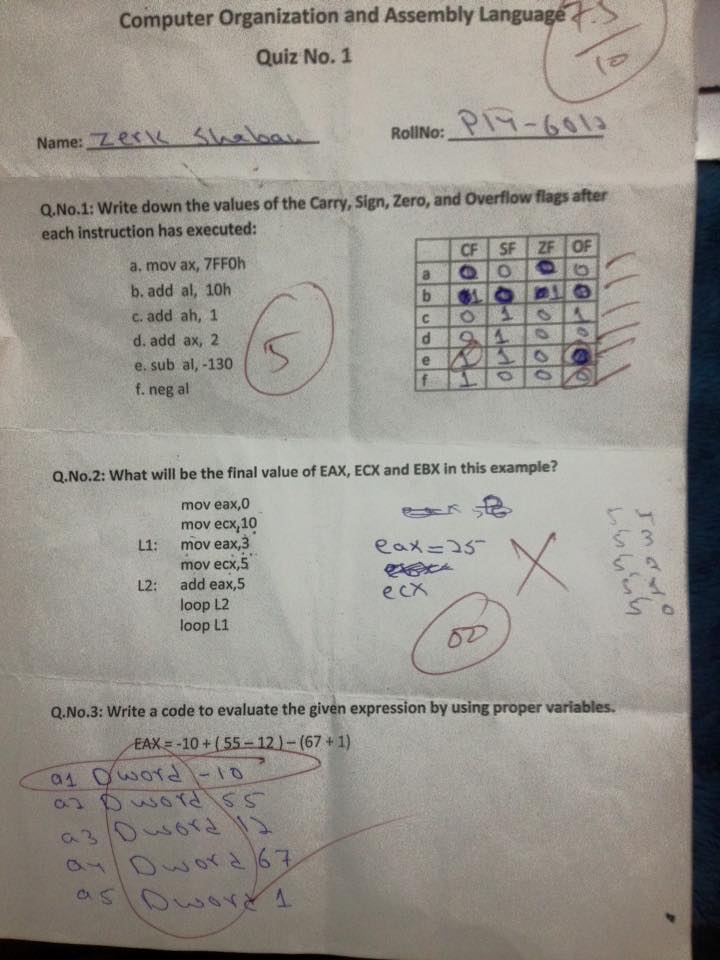 Computer Organization and Assembly Language
7.5/10
Quiz No. 1
Name: Zerk Shaban RollNo: P14-6012
Q.No.1: Write down the values of the Carry, Sign, Zero, and Overflow flags after
each instruction has executed:
a. mov ax, 7FF0h
b. add al, 10h
c. add ah, 1
d. add ax, 2
e. sub al, -130
f. neg al
5
CF SF ZF OF
a 0 0 0 0
b 1 0 1 0
c 0 1 0 1
d 0 1 0 0
e 1 1 0 0
f 1 0 0 0
Q.No.2: What will be the final value of EAX, ECX and EBX in this example?
mov eax,0
mov ecx,10
L1: mov eax,3
mov ecx,5
L2: add eax,5
loop L2
loop L1
eax=25
ecx
00
Q.No.3: Write a code to evaluate the given expression by using proper variables.
EAX = -10 + ( 55 – 12 ) – (67 + 1)
a1 Dword -10
a2 Dword 55
a3 Dword 12
a4 Dword 67
a5 Dword 1